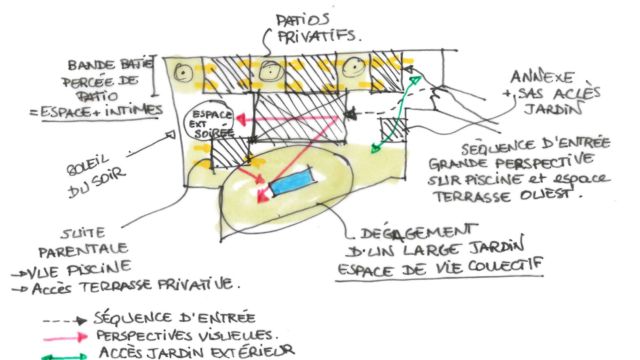 PATIOS
PRIVATIFS.
BANDE BATIE
PERCÉE DE
PATIO
= ESPACE + INTIMES
ESPACE
EXT
SOIRÉE
SOLEIL
DU SOIR
ANNEXE
+ SAS ACCÈS
JARDIN
SÉQUENCE D'ENTRÉE
GRANDE PERSPECTIVE
SUR PISCINE et ESPACE
TERRASSE OUEST.
SUITE
PARENTALE
→ VUE PISCINE
→ Accès TERRASSE PRIVATIVE.
DÉGAGEMENT
D'UN LARGE JARDIN
ESPACE DE VIE COLLECTIF
SÉQUENCE D'ENTRÉE
PERSPECTIVES VISUELLES.
ACCÈS JARDIN EXTÉRIEUR